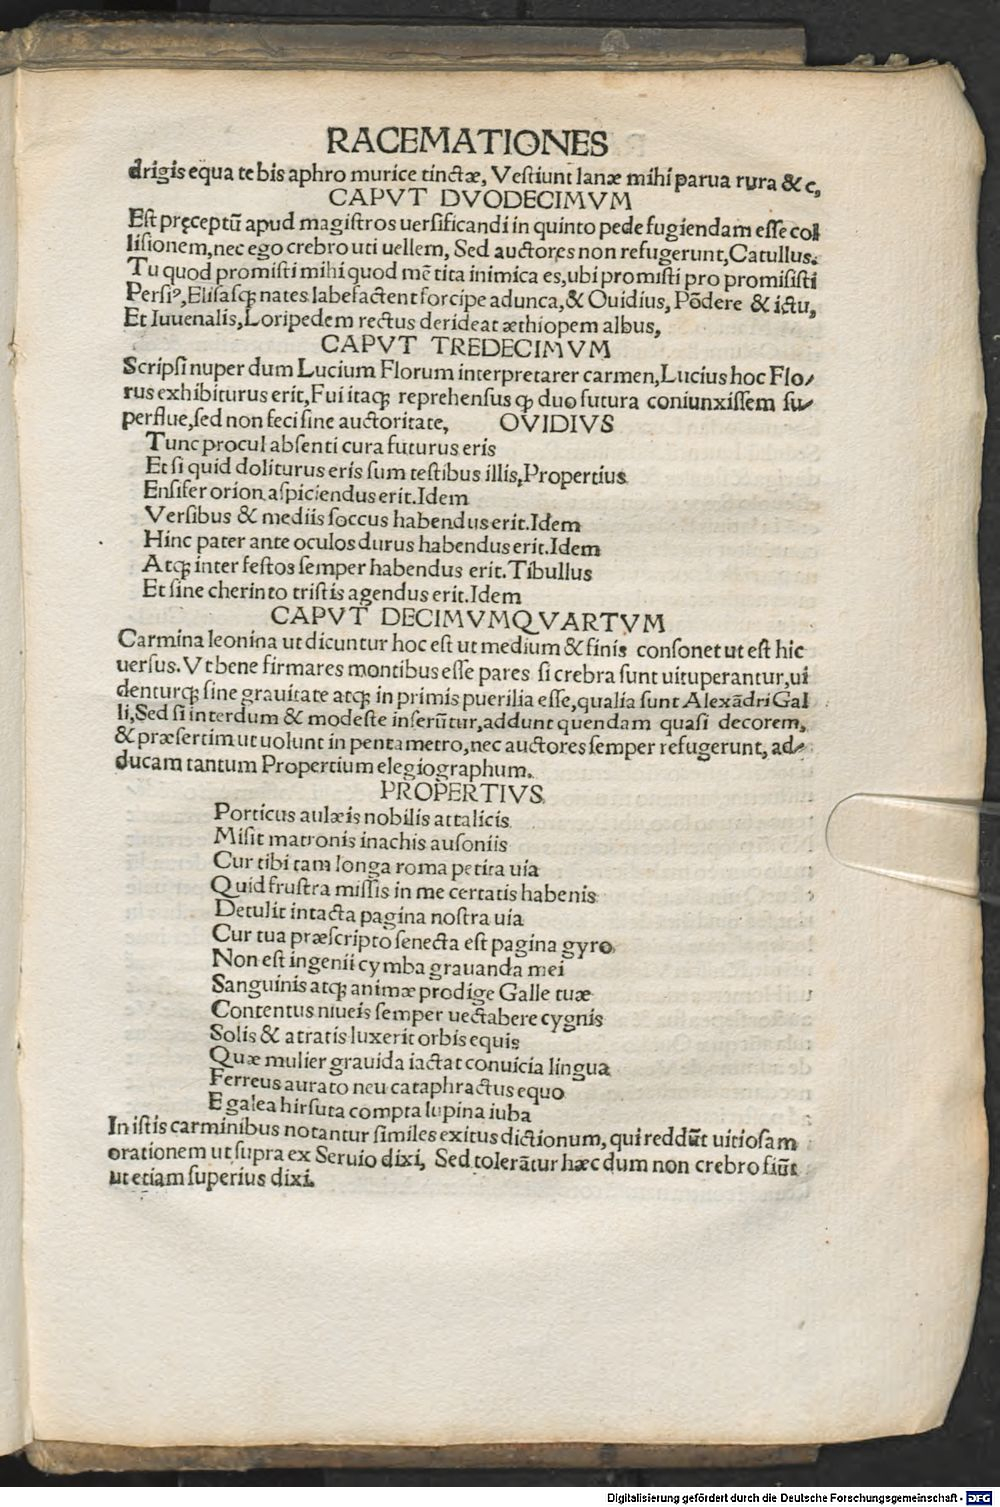 RACEMATIONES
drigis equa te bis aphro murice tinctæ, Vestiunt lanæ mihi parua rura & c,
CAPVT DVODECIMVM
Est pręceptū apud magistros uersificandi in quinto pede fugiendam esse col
lisionem, nec ego crebro uti uellem, Sed auctores non refugerunt, Catullus.
Tu quod promisti mihi quod mētita inimica es, ubi promisti pro promisisti
Persiꝰ, Elisasqꝫ nates labefactent forcipe adunca, & Ouidius, Pōdere & ictu,
Et Iuuenalis, Loripedem rectus derideat æthiopem albus,
CAPVT TREDECIMVM
Scripsi nuper dum Lucium Florum interpretarer carmen, Lucius hoc Flo/
rus exhibiturus erit, Fui itaqꝫ reprehensus ꝙ duo futura coniunxissem su/
perflue, sed non feci sine auctoritate, OVIDIVS
Tunc procul absenti cura futurus eris
Et si quid doliturus eris sum testibus illis, Propertius
Ensifer orion aspiciendus erit. Idem
Versibus & mediis soccus habendus erit. Idem
Hinc pater ante oculos durus habendus erit. Idem
Atqꝫ inter festos semper habendus erit. Tibullus
Et sine cherinto tristis agendus erit. Idem
CAPVT DECIMVMQVARTVM
Carmina leonina ut dicuntur hoc est ut medium & finis consonet ut est hic
uersus. Vt bene firmares montibus esse pares si crebra sunt uituperantur, ui
denturqꝫ sine grauitate atqꝫ in primis puerilia esse, qualia sunt Alexādri Gal
li, Sed si interdum & modeste inserūtur, addunt quendam quasi decorem,
& præsertim ut uolunt in pentametro, nec auctores semper refugerunt, ad/
ducam tantum Propertium elegiographum.
PROPERTIVS
Porticus aulæis nobilis attalicis
Misit matronis inachis ausoniis
Cur tibi tam longa roma petita uia
Quid frustra missis in me certatis habenis
Detulit intacta pagina nostra uia
Cur tua præscripto senecta est pagina gyro
Non est ingenii cymba grauanda mei
Sanguinis atqꝫ animæ prodige Galle tuæ
Contentus niueis semper uectabere cygnis
Solis & atratis luxerit orbis equis
Quæ mulier grauida iactat conuicia lingua
Ferreus aurato neu cataphractus equo
E galea hirsuta compta lupina iuba
In istis carminibus notantur similes exitus dictionum, qui reddūt uitiosam
orationem ut supra ex Seruio dixi, Sed tolerātur hæc dum non crebro fiūt
ut etiam superius dixi.
Digitalisierung gefördert durch die Deutsche Forschungsgemeinschaft - DFG